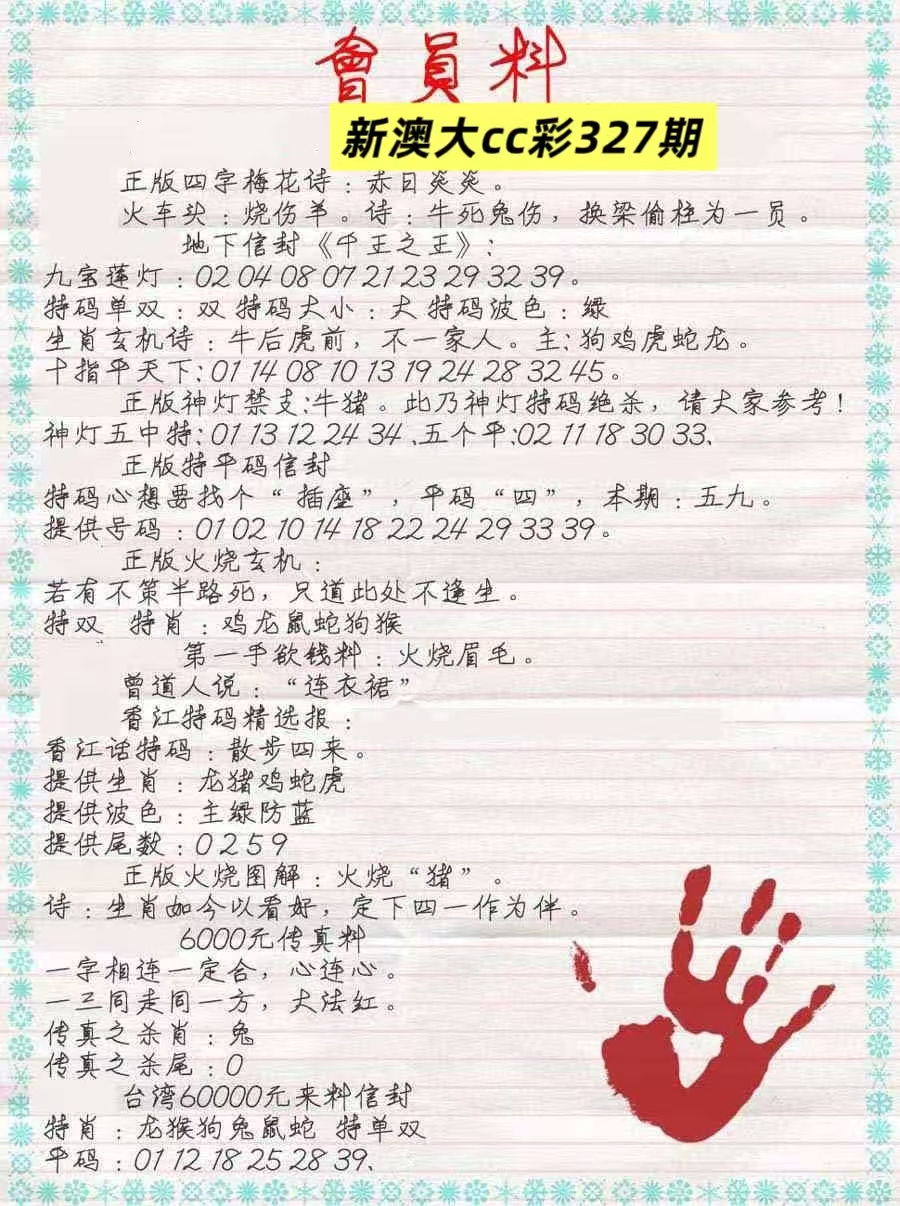 會員料
新澳大cc彩327期
正版四字梅花诗：赤日炎炎。
火车头：烧伤羊。诗：牛死兔伤，换梁偷柱为一员。
地下信封《千王之王》：
九宝莲灯：02 04 08 07 21 23 29 32 39。
特码单双：双 特码大小：大 特码波色：绿
生肖玄机诗：牛后虎前，不一家人。主：狗鸡虎蛇龙。
十指平天下：01 14 08 10 13 19 24 28 32 45。
正版神灯禁支：牛猪。此乃神灯特码绝杀，请大家参考！
神灯五中特：01 13 12 24 34、五个平：02 11 18 30 33、
正版特平码信封
特码心想要找个“插座”，平码“四”，本期：五九。
提供号码：01 02 10 14 18 22 24 29 33 39。
正版火烧玄机：
若有不策半路死，只道此处不逢生。
特双 特肖：鸡龙鼠蛇狗猴
第一手欲钱料：火烧眉毛。
曾道人说：“连衣裙”
香江特码精选报：
香江话特码：散步四来。
提供生肖：龙猪鸡蛇虎
提供波色：主绿防蓝
提供尾数：0 2 5 9
正版火烧图解：火烧“猪”。
诗：生肖如今以看好，定下四一作为伴。
6000元传真料
一字相连一定合，心连心。
一三同走同一方，大法红。
传真之杀肖：兔
传真之杀尾：0
台湾60000元来料信封
特肖：龙猴狗兔鼠蛇 特单双
平码：01 12 18 25 28 39、